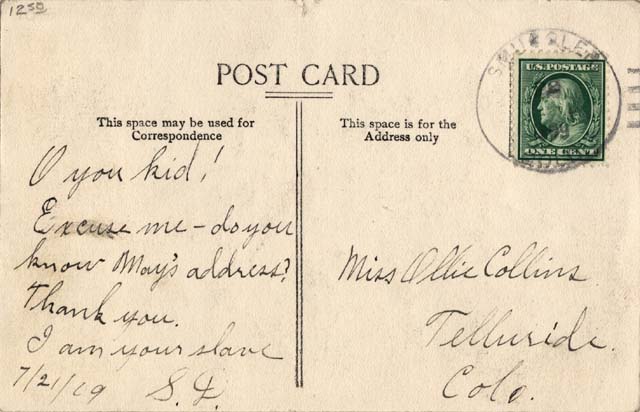 12 50
POST CARD
This space may be used for
Correspondence
This space is for the
Address only
SMUGGLER
U.S. POSTAGE
ONE CENT
O you kid!
Excuse me - do you
know May's address?
Thank you.
I am your slave
7/21/09 S.L.
Miss Ollie Collins.
Telluride.
Colo.